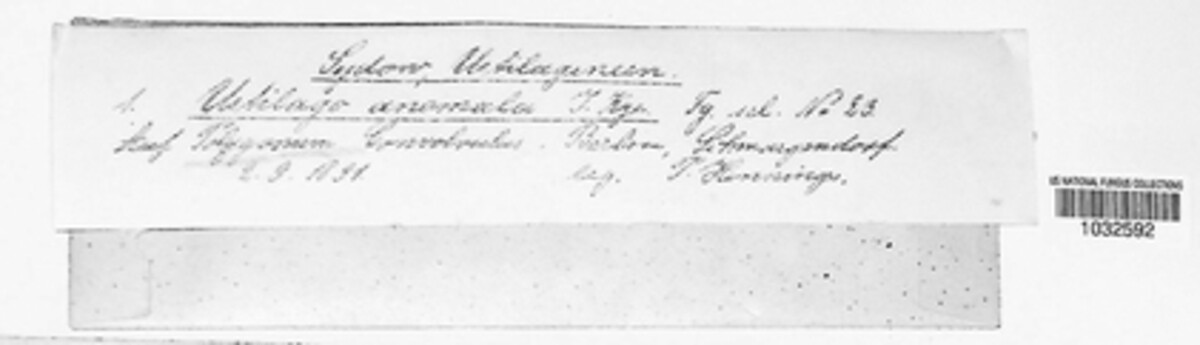 Sydow, Ustilagineen.
1. Ustilago anomala J. Kze. Fg. sel. No 23
Auf Polygonum Convolvulus. Berlin, Schmargendorf
2. 9. 1891 leg. P. Hennings.
US NATIONAL FUNGUS COLLECTIONS
1032592